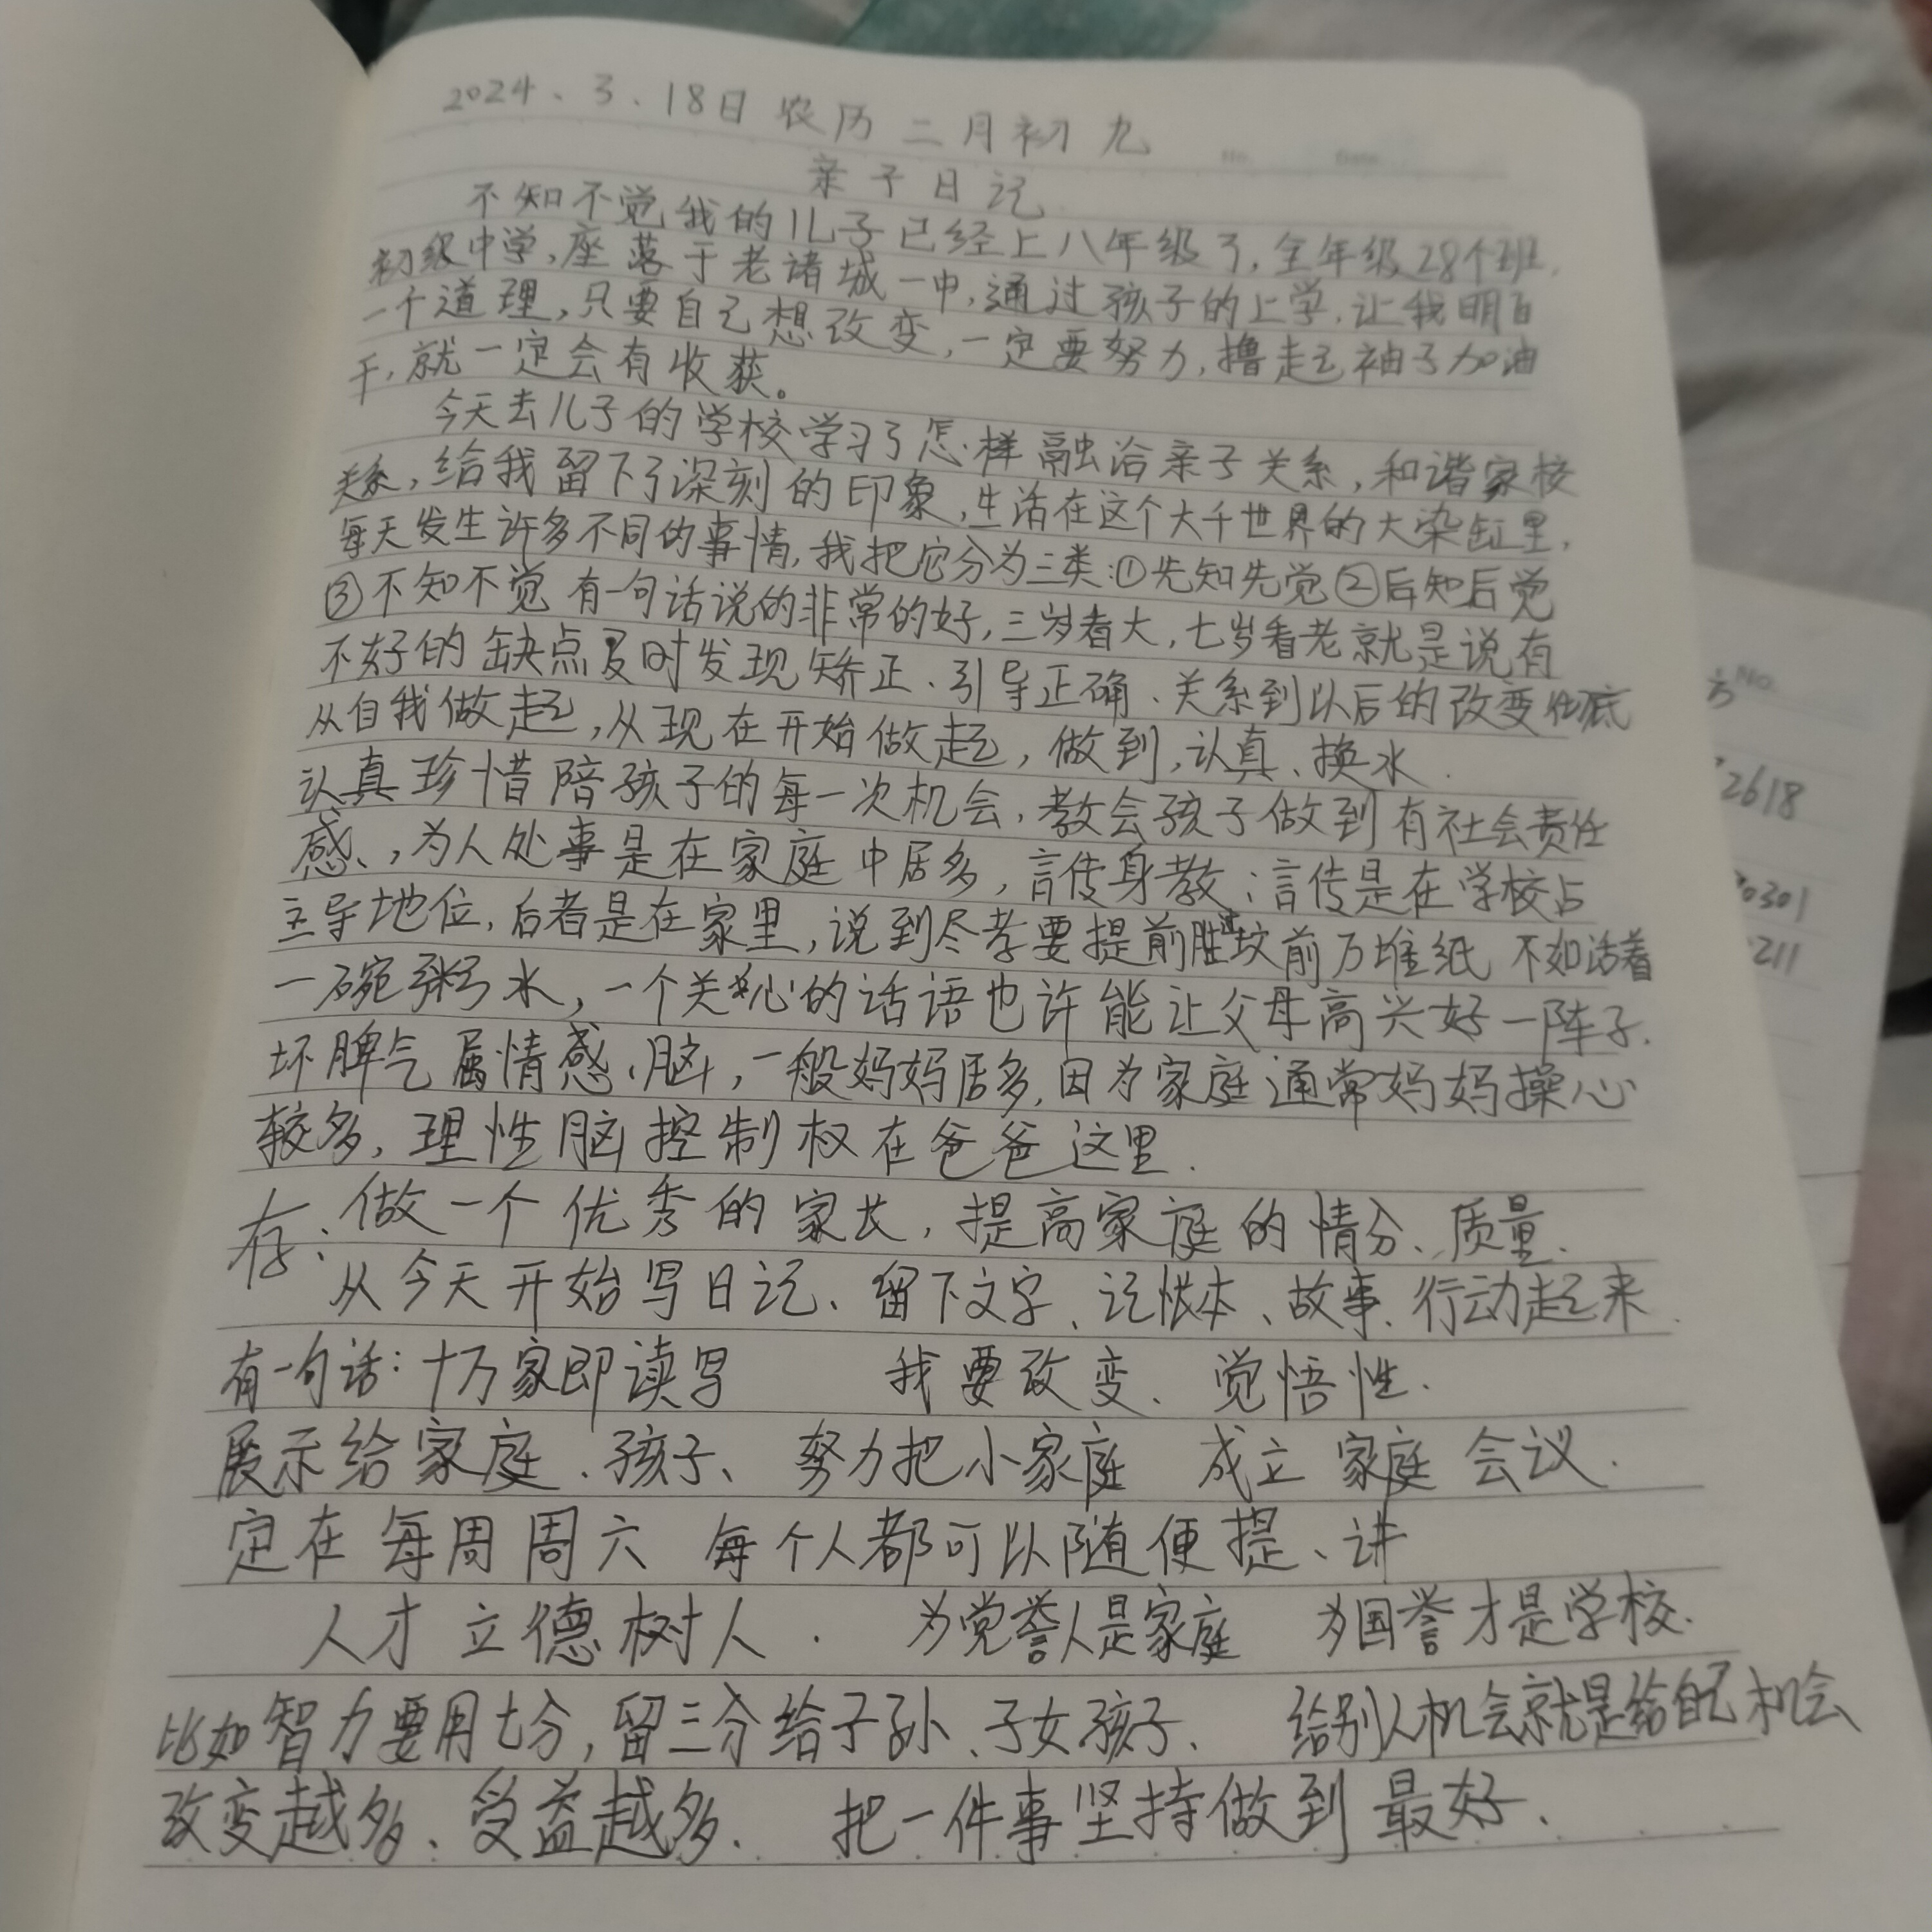 2024、3、18日 农历 二月初九
亲子日记
不知不觉我的儿子已经上八年级了,全年级28个班,
初级中学,座落于老诸城一中,通过孩子的上学,让我明白
一个道理,只要自己想改变,一定要努力,撸起袖子加油
干,就一定会有收获。
今天去儿子的学校学习了怎样融洽亲子关系,和谐家校
关系,给我留下了深刻的印象,生活在这个大千世界的大染缸里,
每天发生许多不同的事情,我把它分为三类:①先知先觉②后知后觉
③不知不觉 有一句话说的非常的好,三岁看大,七岁看老就是说有
不好的缺点及时发现矫正、引导正确、关系到以后的改变彻底
从自我做起,从现在开始做起,做到,认真、换水.
认真珍惜陪孩子的每一次机会,教会孩子做到有社会责任
感、,为人处事是在家庭中居多,言传身教;言传是在学校占
主导地位,后者是在家里,说到尽孝要提前 坟前万堆纸 不如活着
一碗粥水,一个关心的话语也许能让父母高兴好一阵子.
坏脾气属情感、脑,一般妈妈居多,因为家庭通常妈妈操心
较多,理性脑控制权在爸爸这里.
存:做一个优秀的家长,提高家庭的情分、质量.
从今天开始写日记、留下文字、记帐本、故事、行动起来.
有一句话:十万家即读写 我要改变、觉悟性.
展示给家庭、孩子、 努力把小家庭 成立 家庭 会议.
定在每周周六 每个人都可以随便提、讲
人才 立德树人. 为党誉人是家庭 为国誉才是学校.
比如智力要用七分,留三分给子孙、子女孩子、 给别人机会就是给自己机会
改变越多、受益越多. 把一件事坚持做到最好、
No.
2618
0301
211